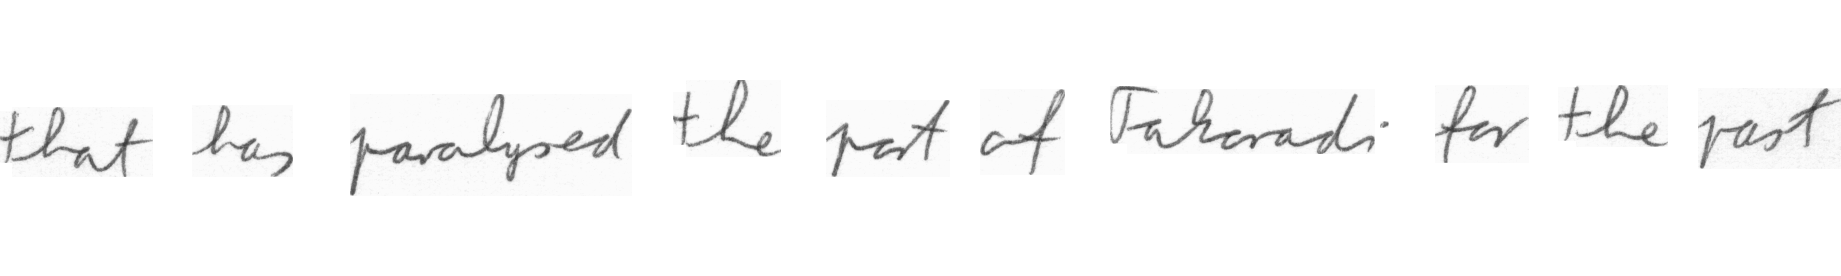 that has paralysed the port of Takoradi for the past